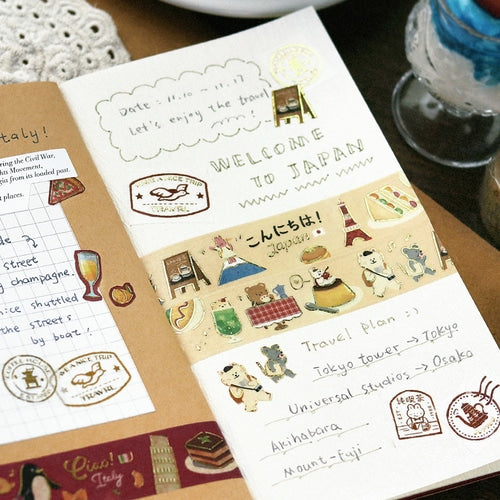 taly!
ring the Civil War,
hts Movement,
gia from its loaded past.
t places.
de
street
champagne.
nice shuttled
the streets
by boat!
A NICE TRIP
TRAVEL
Ciao!
Italy
Date: 11.10 - 11.17
Let's enjoy the travel
!
WELCOME
TO JAPAN
A NICE TRIP
TRAVEL
こんにちは!
Japan
Travel Plan :)
Tokyo tower → Tokyo
Universal studios → Osaka
Akihabara
Mount-Fuji
純喫茶